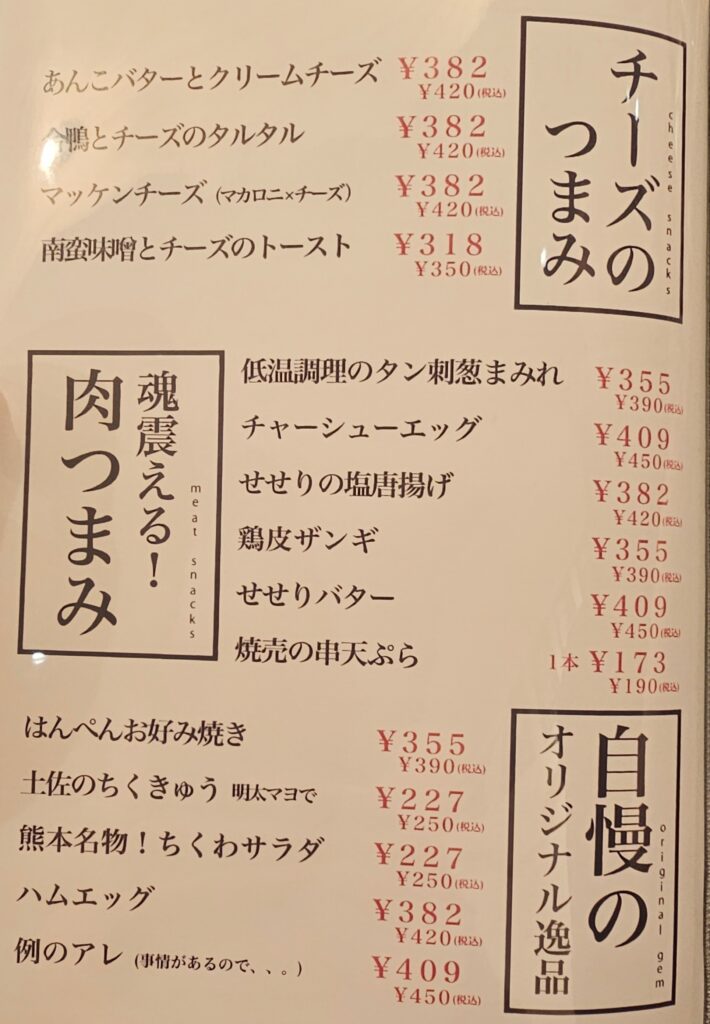 チーズの
つまみ
cheese snacks
あんこバターとクリームチーズ ¥382
¥420(税込)
合鴨とチーズのタルタル ¥382
¥420(税込)
マッケンチーズ (マカロニ×チーズ) ¥382
¥420(税込)
南蛮味噌とチーズのトースト ¥318
¥350(税込)
魂震える!
肉つまみ
meat snacks
低温調理のタン刺葱まみれ ¥355
¥390(税込)
チャーシューエッグ ¥409
¥450(税込)
せせりの塩唐揚げ ¥382
¥420(税込)
鶏皮ザンギ ¥355
¥390(税込)
せせりバター ¥409
¥450(税込)
焼売の串天ぷら 1本 ¥173
¥190(税込)
自慢の
オリジナル逸品
original gem
はんぺんお好み焼き ¥355
¥390(税込)
土佐のちくきゅう 明太マヨで ¥227
¥250(税込)
熊本名物!ちくわサラダ ¥227
¥250(税込)
ハムエッグ ¥382
¥420(税込)
例のアレ (事情があるので、、。) ¥409
¥450(税込)